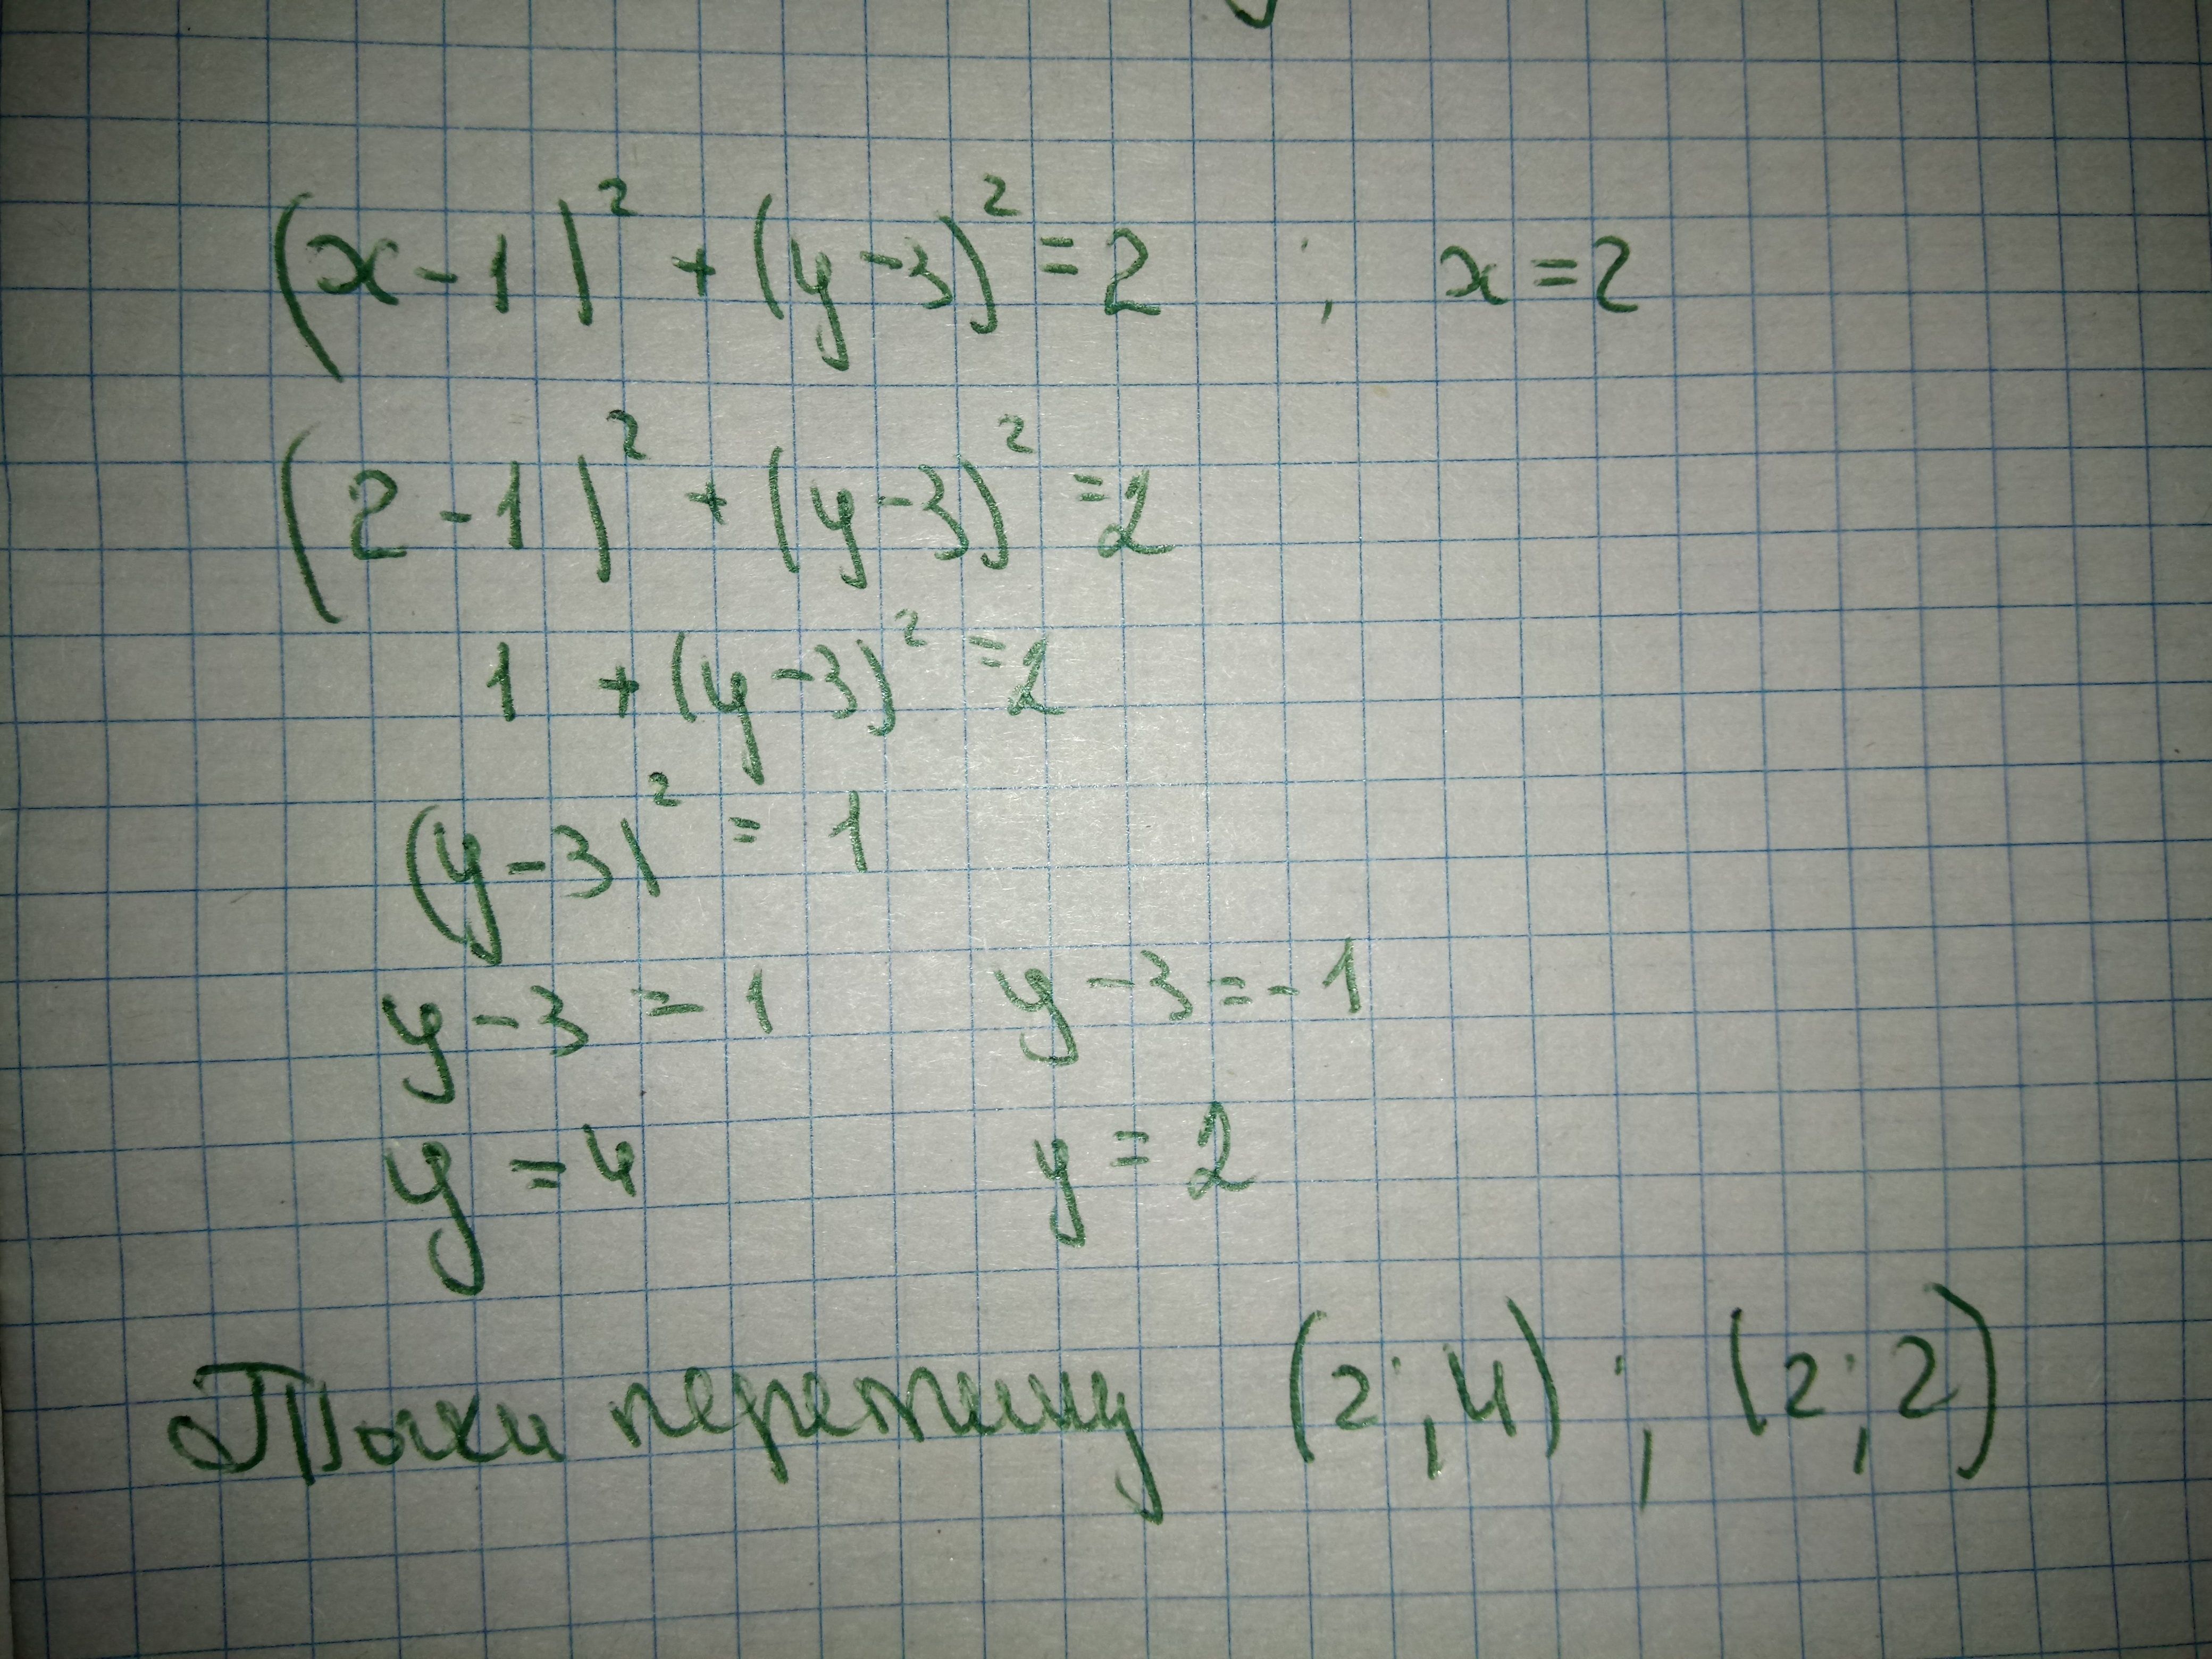 (x-1)² + (y-3)² = 2 ; x = 2
(2-1)² + (y-3)² = 2
1 + (y-3)² = 2
(y-3)² = 1
y-3 = 1 y-3 = -1
y = 4 y = 2
Точки перетину (2;4); (2;2)